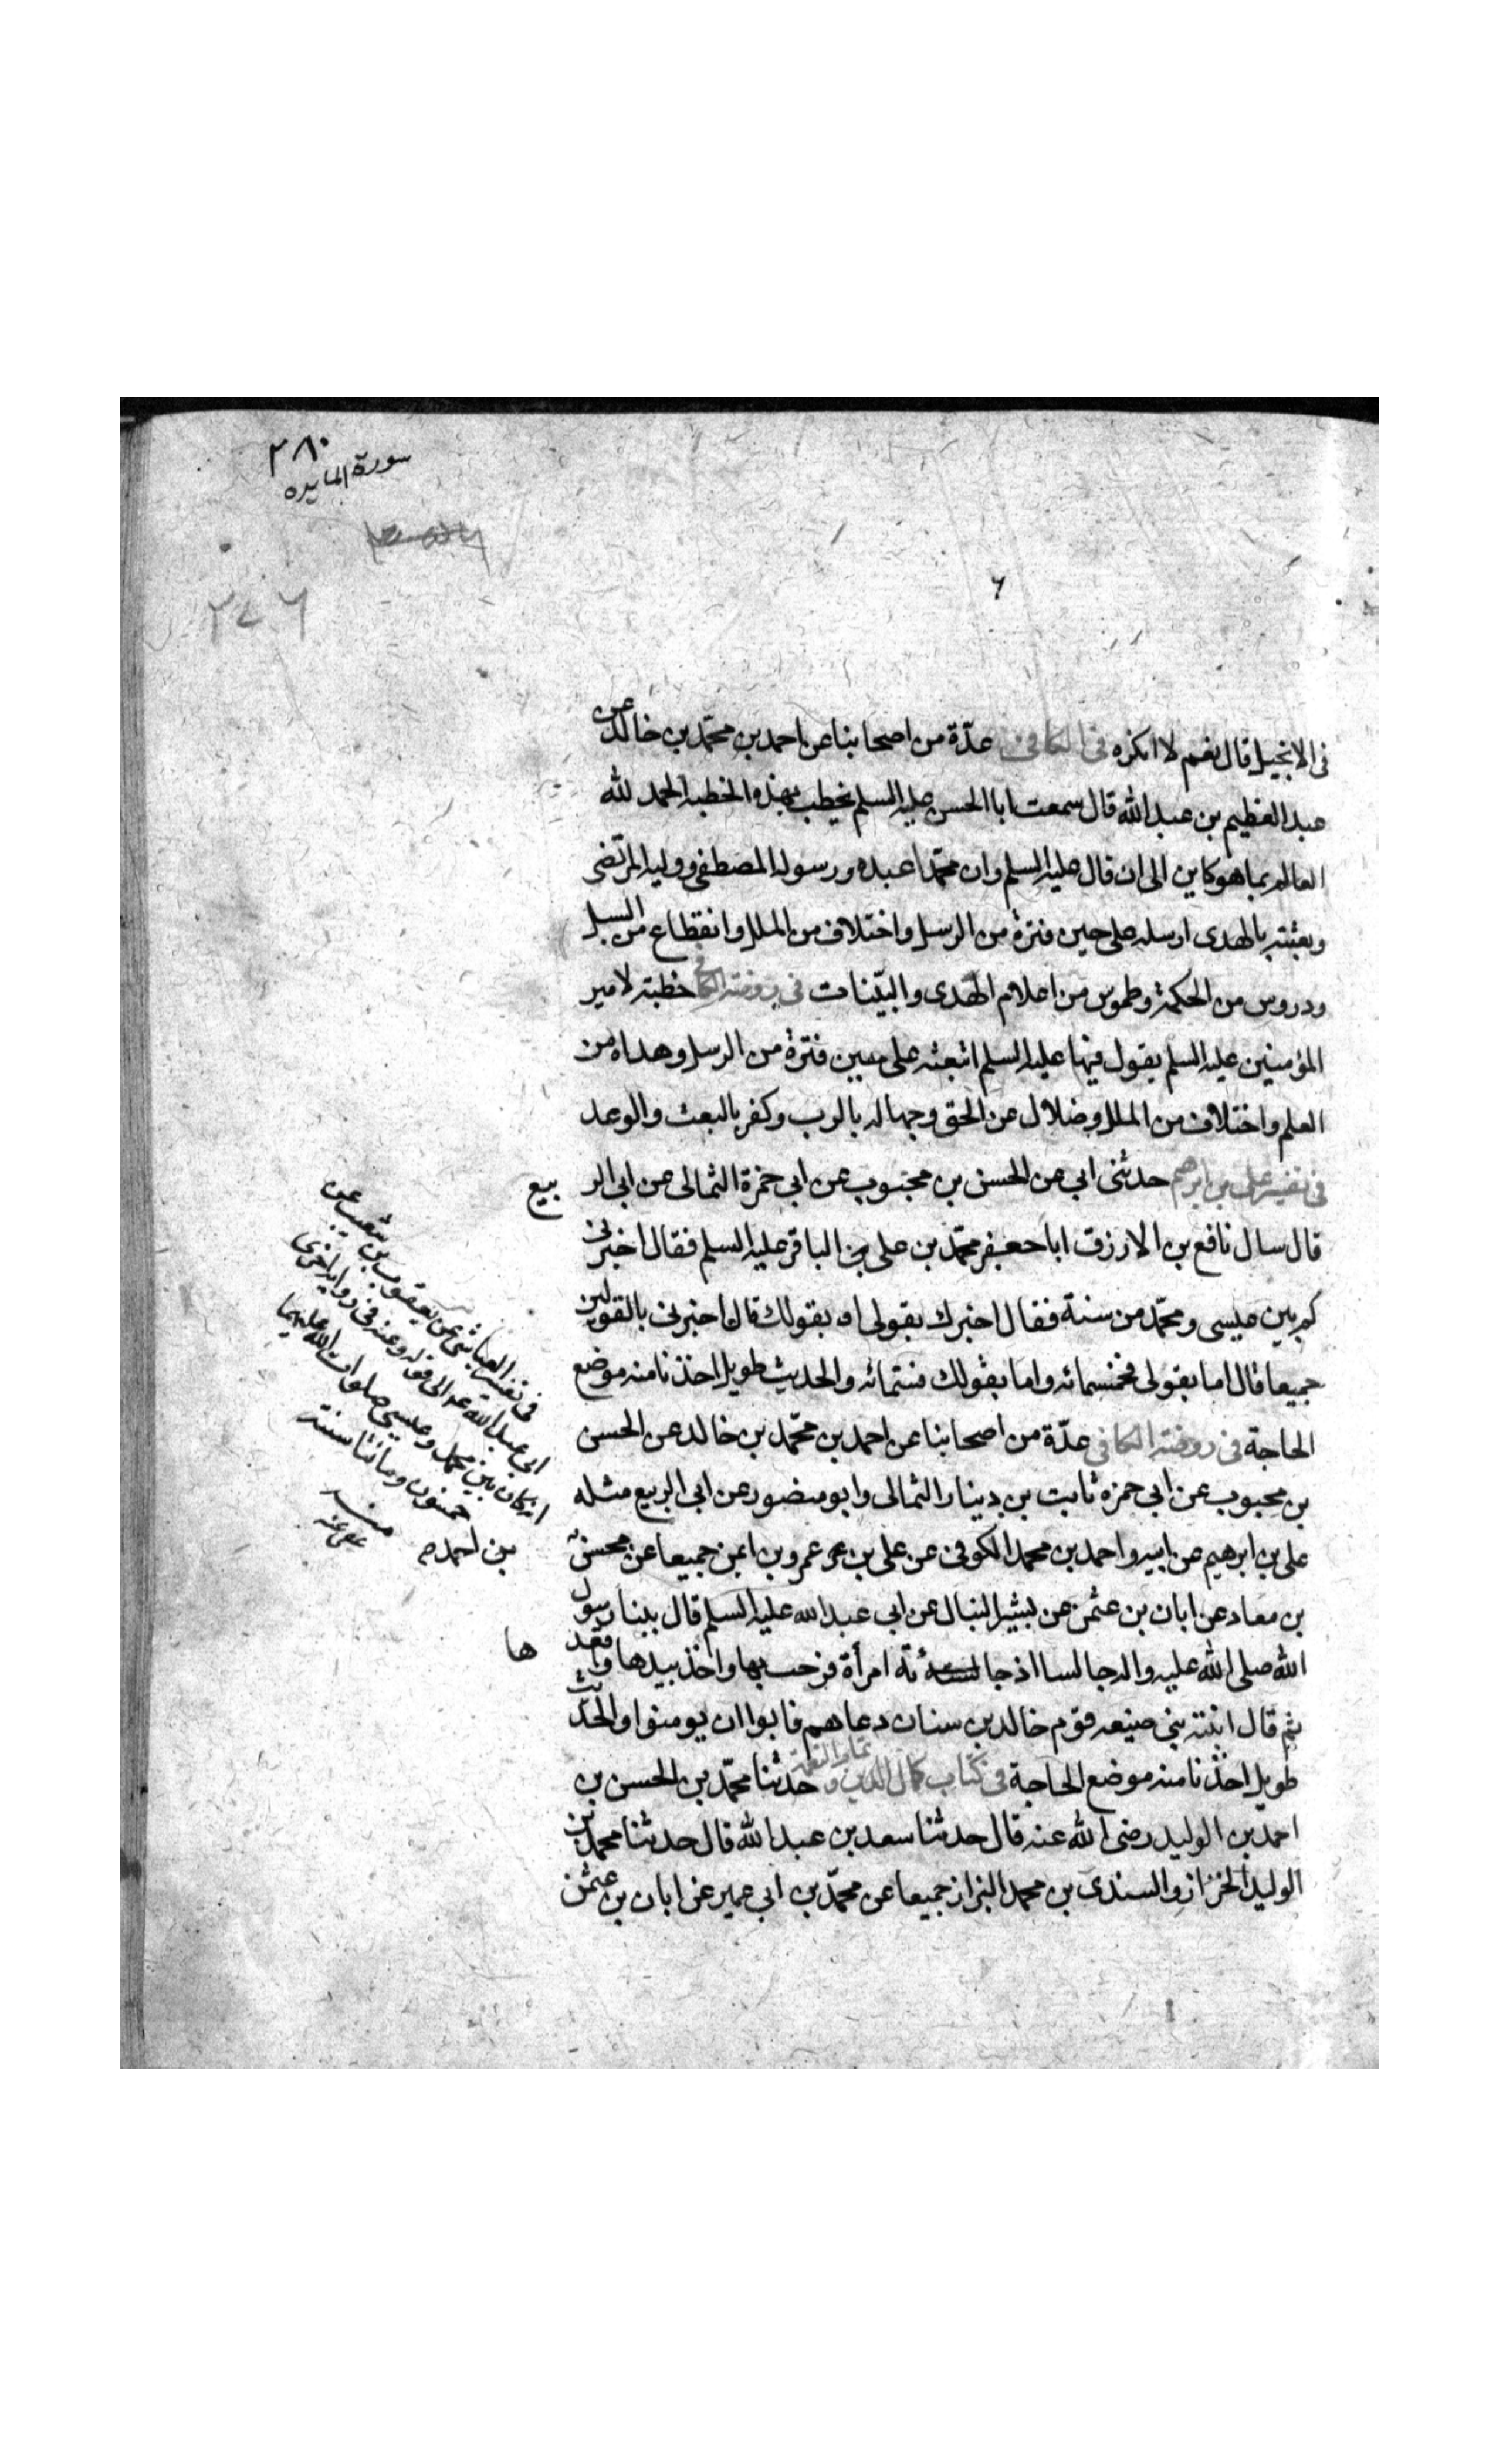 ٢٨٠
سورة المايده
٢٧٦
في الانجيل قال نعم لا انكره في الكافي عدّة من اصحابنا عن احمد بن محمّد بن خالد عن
عبد العظيم بن عبد الله قال سمعت ابا الحسن عليه السلم يخطب بهذه الخطبه الحمد لله
العالم بما هو كاين الى ان قال عليه السلم وان محمّدا عبده ورسوله المصطفى ووليه المرتضى
وبعثته بالهدى ارسله على حين فترة من الرسل واختلاف من الملل وانقطاع من السبل
ودروس من الحكمة وطموس من اعلام الهدى والبيّنات في روضة الكافي خطبة لامير
المؤمنين عليه السلم يقول فيها عليه السلم ابتعثه على حين فترة من الرسل وهداة من
العلم واختلاف من الملل وضلال عن الحق وجهاله بالرب وكفر بالبعث والوعد
في تفسير علي بن ابرهيم حدثني ابي عن الحسن بن محبوب عن ابي حمزة الثمالى عن ابى الربيع
قال سال نافع بن الازرق ابا جعفر محمّد بن علي بن الباقر عليه السلم فقال اخبرني
كم بين عيسى ومحمّد من سنة فقال اخبرك بقولى او بقولك قال اخبرنى بالقولين
جميعا قال اما بقولى فخمسمائه واما بقولك فستمائه والحديث طويل اخذنا منه موضع
الحاجة في روضة الكافي عدّة من اصحابنا عن احمد بن محمّد بن خالد عن الحسن
بن محبوب عن ابي حمزه ثابت بن دينار الثمالى وابو منصور عن ابى الربيع مثله
على بن ابرهيم عن ابيه واحمد بن محمد الكوفى عن على بن عمرو بن ايمن جميعا عن محسن
بن احمد
بن معاد عن ابان بن عثمن عن بشير النبال عن ابي عبد الله عليه السلم قال بينا رسول
الله صلى الله عليه واله جالسا اذ جائته امرأة فرحب بها واخذ بيدها واقعدها
ثم قال ابنة نبي ضيعه قوم خالد بن سنان دعاهم فابوا ان يومنوا والحديث
طويل اخذنا منه موضع الحاجة في كتاب كمال الدين وتمام النعمة حدثنا محمّد بن الحسن بن
احمد بن الوليد رضى الله عنه قال حدثنا سعد بن عبد الله قال حدثنا محمد بن
الوليد الخزاز والسندى بن محمد البزاز جميعا عن محمّد بن ابي عمير عن ابان بن عثمن
في تفسير العياشي عن يعقوب بن شعيب عن
ابي عبد الله الى قوله وعنه في رواية اخرى
ان كان بين محمد وعيسى صلوات الله عليهما
خمسون وماتنا سنة
منه
عفي عنه